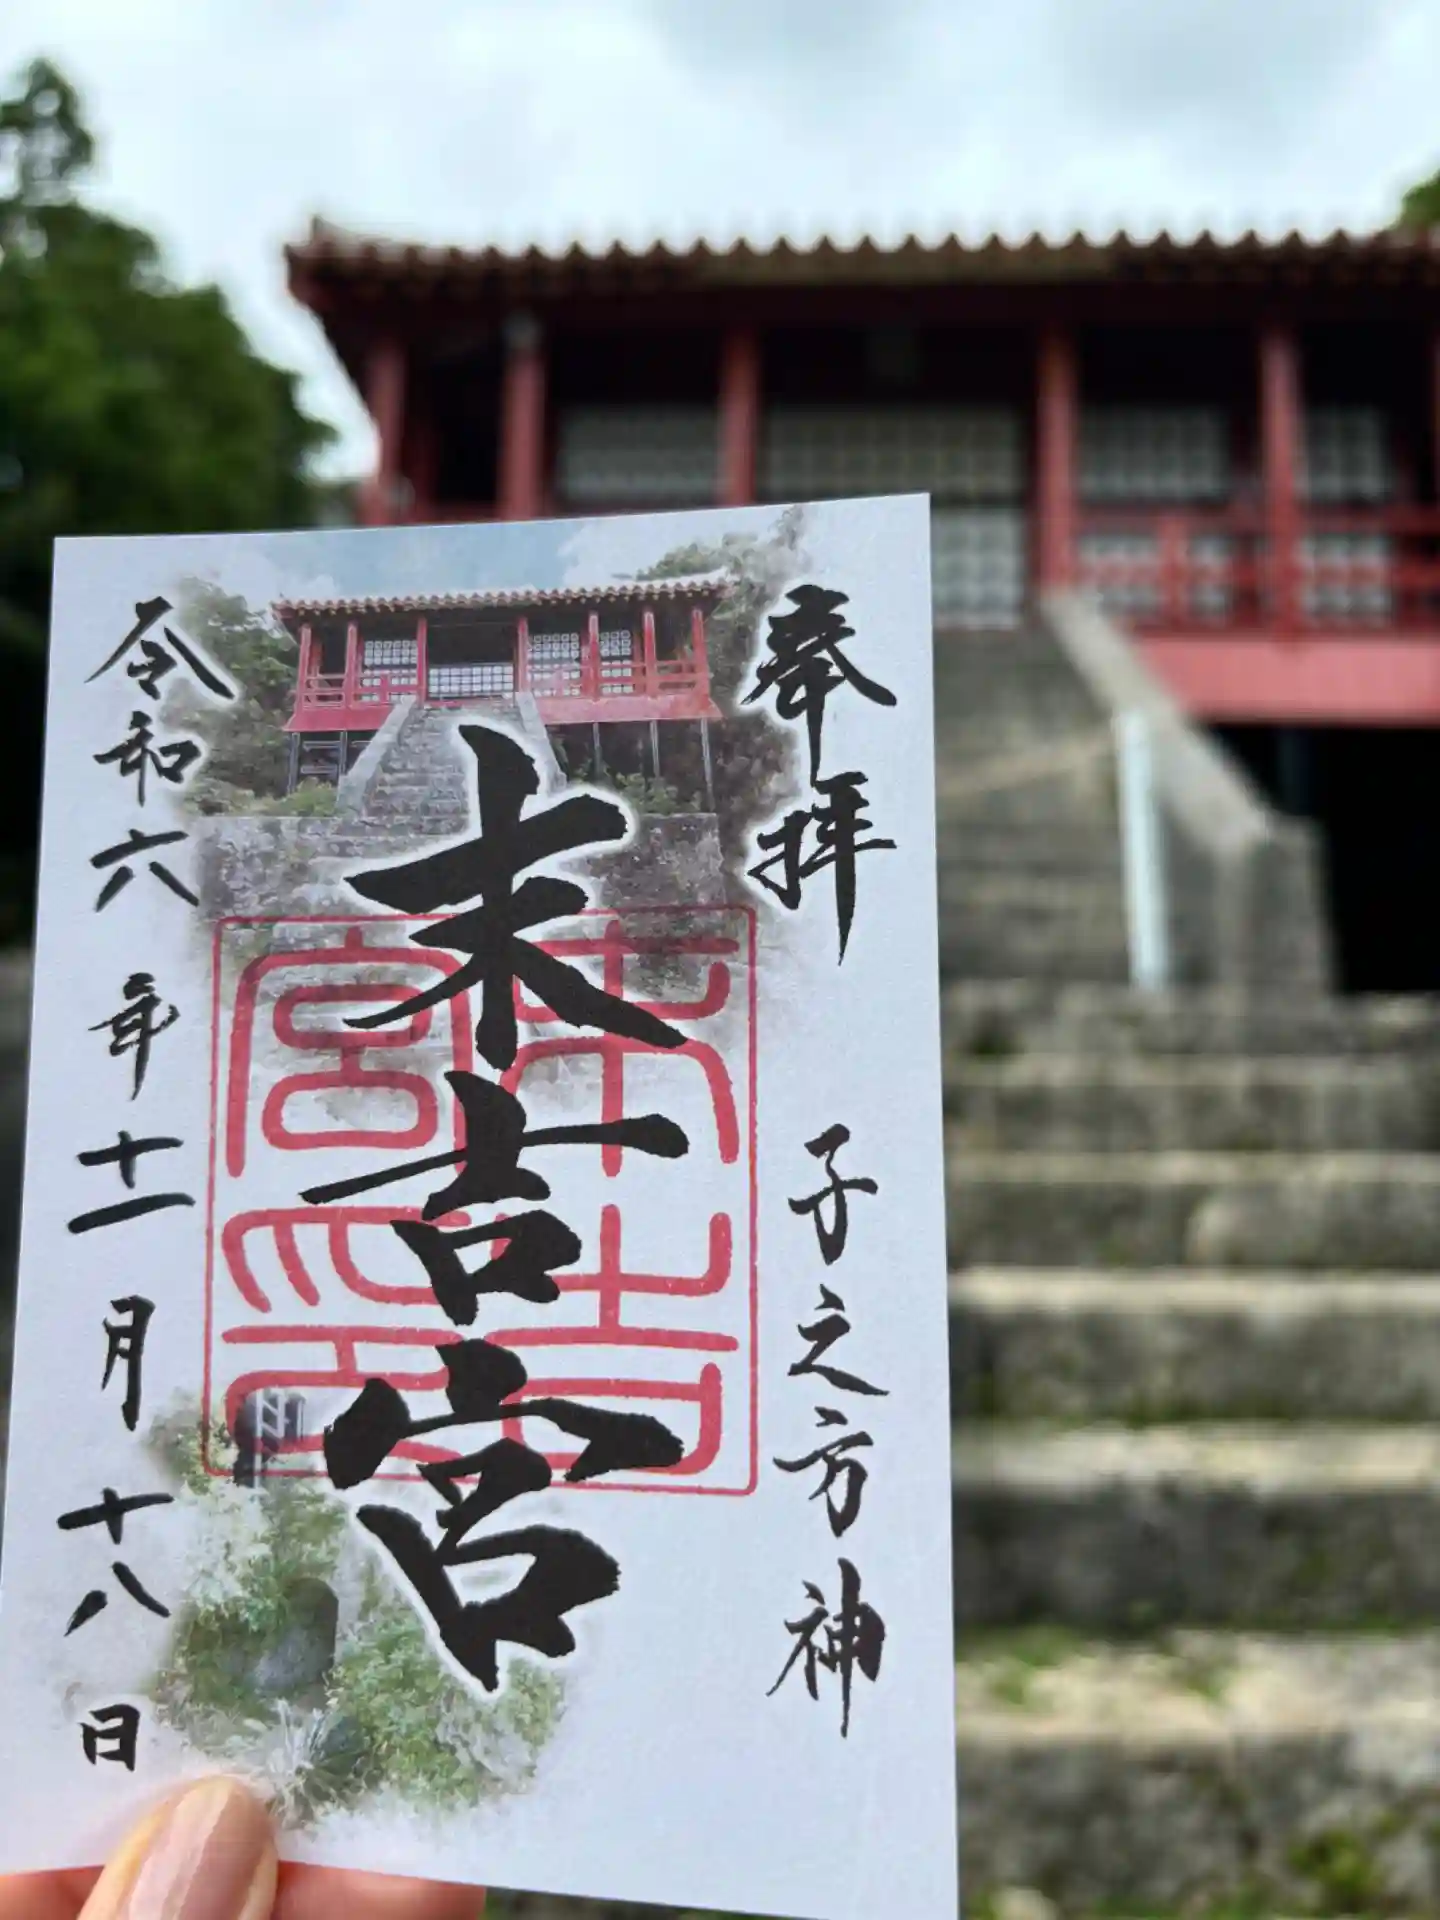 奉拝
子之方神
末吉宮
末吉宮印
令和六年十一月十八日